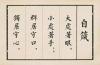 自箴
大處著眼，
小處著手；
群居守口，
獨居守心。